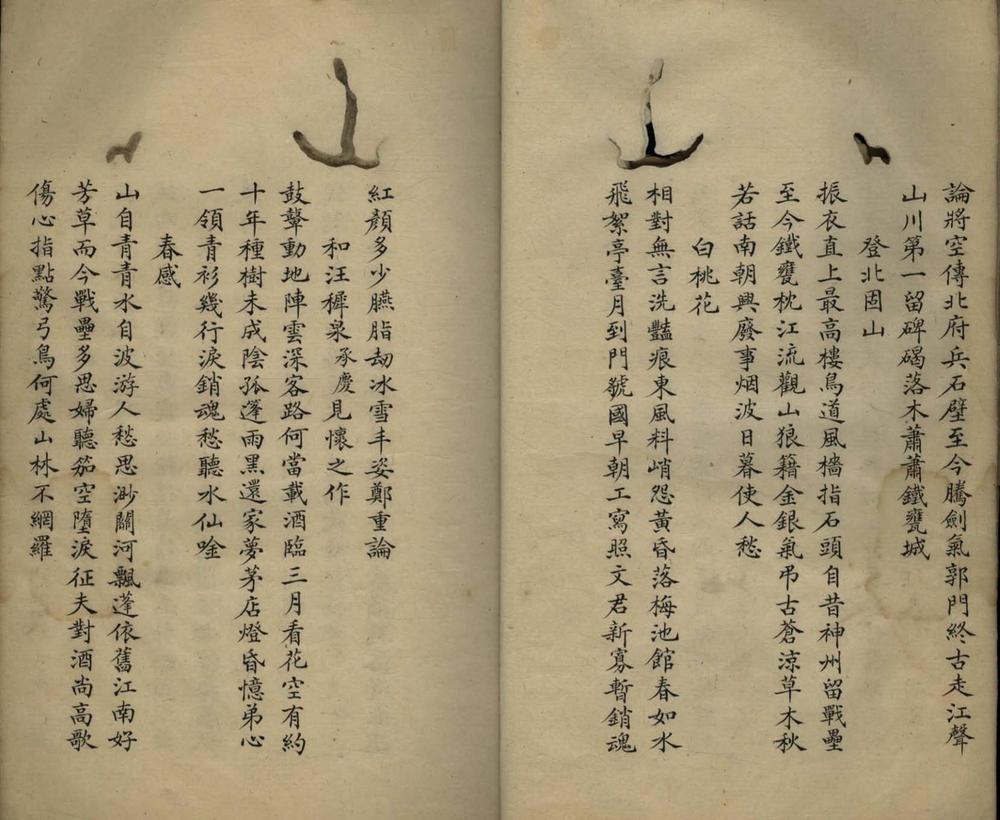 論將空傳北府兵石壁至今騰劍氣郭門終古走江聲
山川第一留碑碣落木蕭蕭鐵甕城
登北固山
振衣直上最高樓鳥道風檣指石頭自昔神州留戰壘
至今鐵甕枕江流觀山狼籍金銀氣弔古蒼涼草木秋
若話南朝興廢事烟波日暮使人愁
白桃花
相對無言洗豔痕東風料峭怨黃昏落梅池館春如水
飛絮亭臺月到門號國早朝工寫照文君新寡暫銷魂
紅顏多少臙脂劫冰雪丰姿鄭重論
和汪樨泉承慶見懷之作
鼓鼙動地陣雲深客路何當載酒臨三月看花空有約
十年種樹未成陰孤篷雨黑還家夢茅店燈昏憶弟心
一領青衫幾行淚銷魂愁聽水仙唫
春感
山自青青水自波游人愁思渺關河飄蓬依舊江南好
芳草而今戰壘多思婦聽笳空墮淚征夫對酒尚高歌
傷心指點驚弓鳥何處山林不網羅